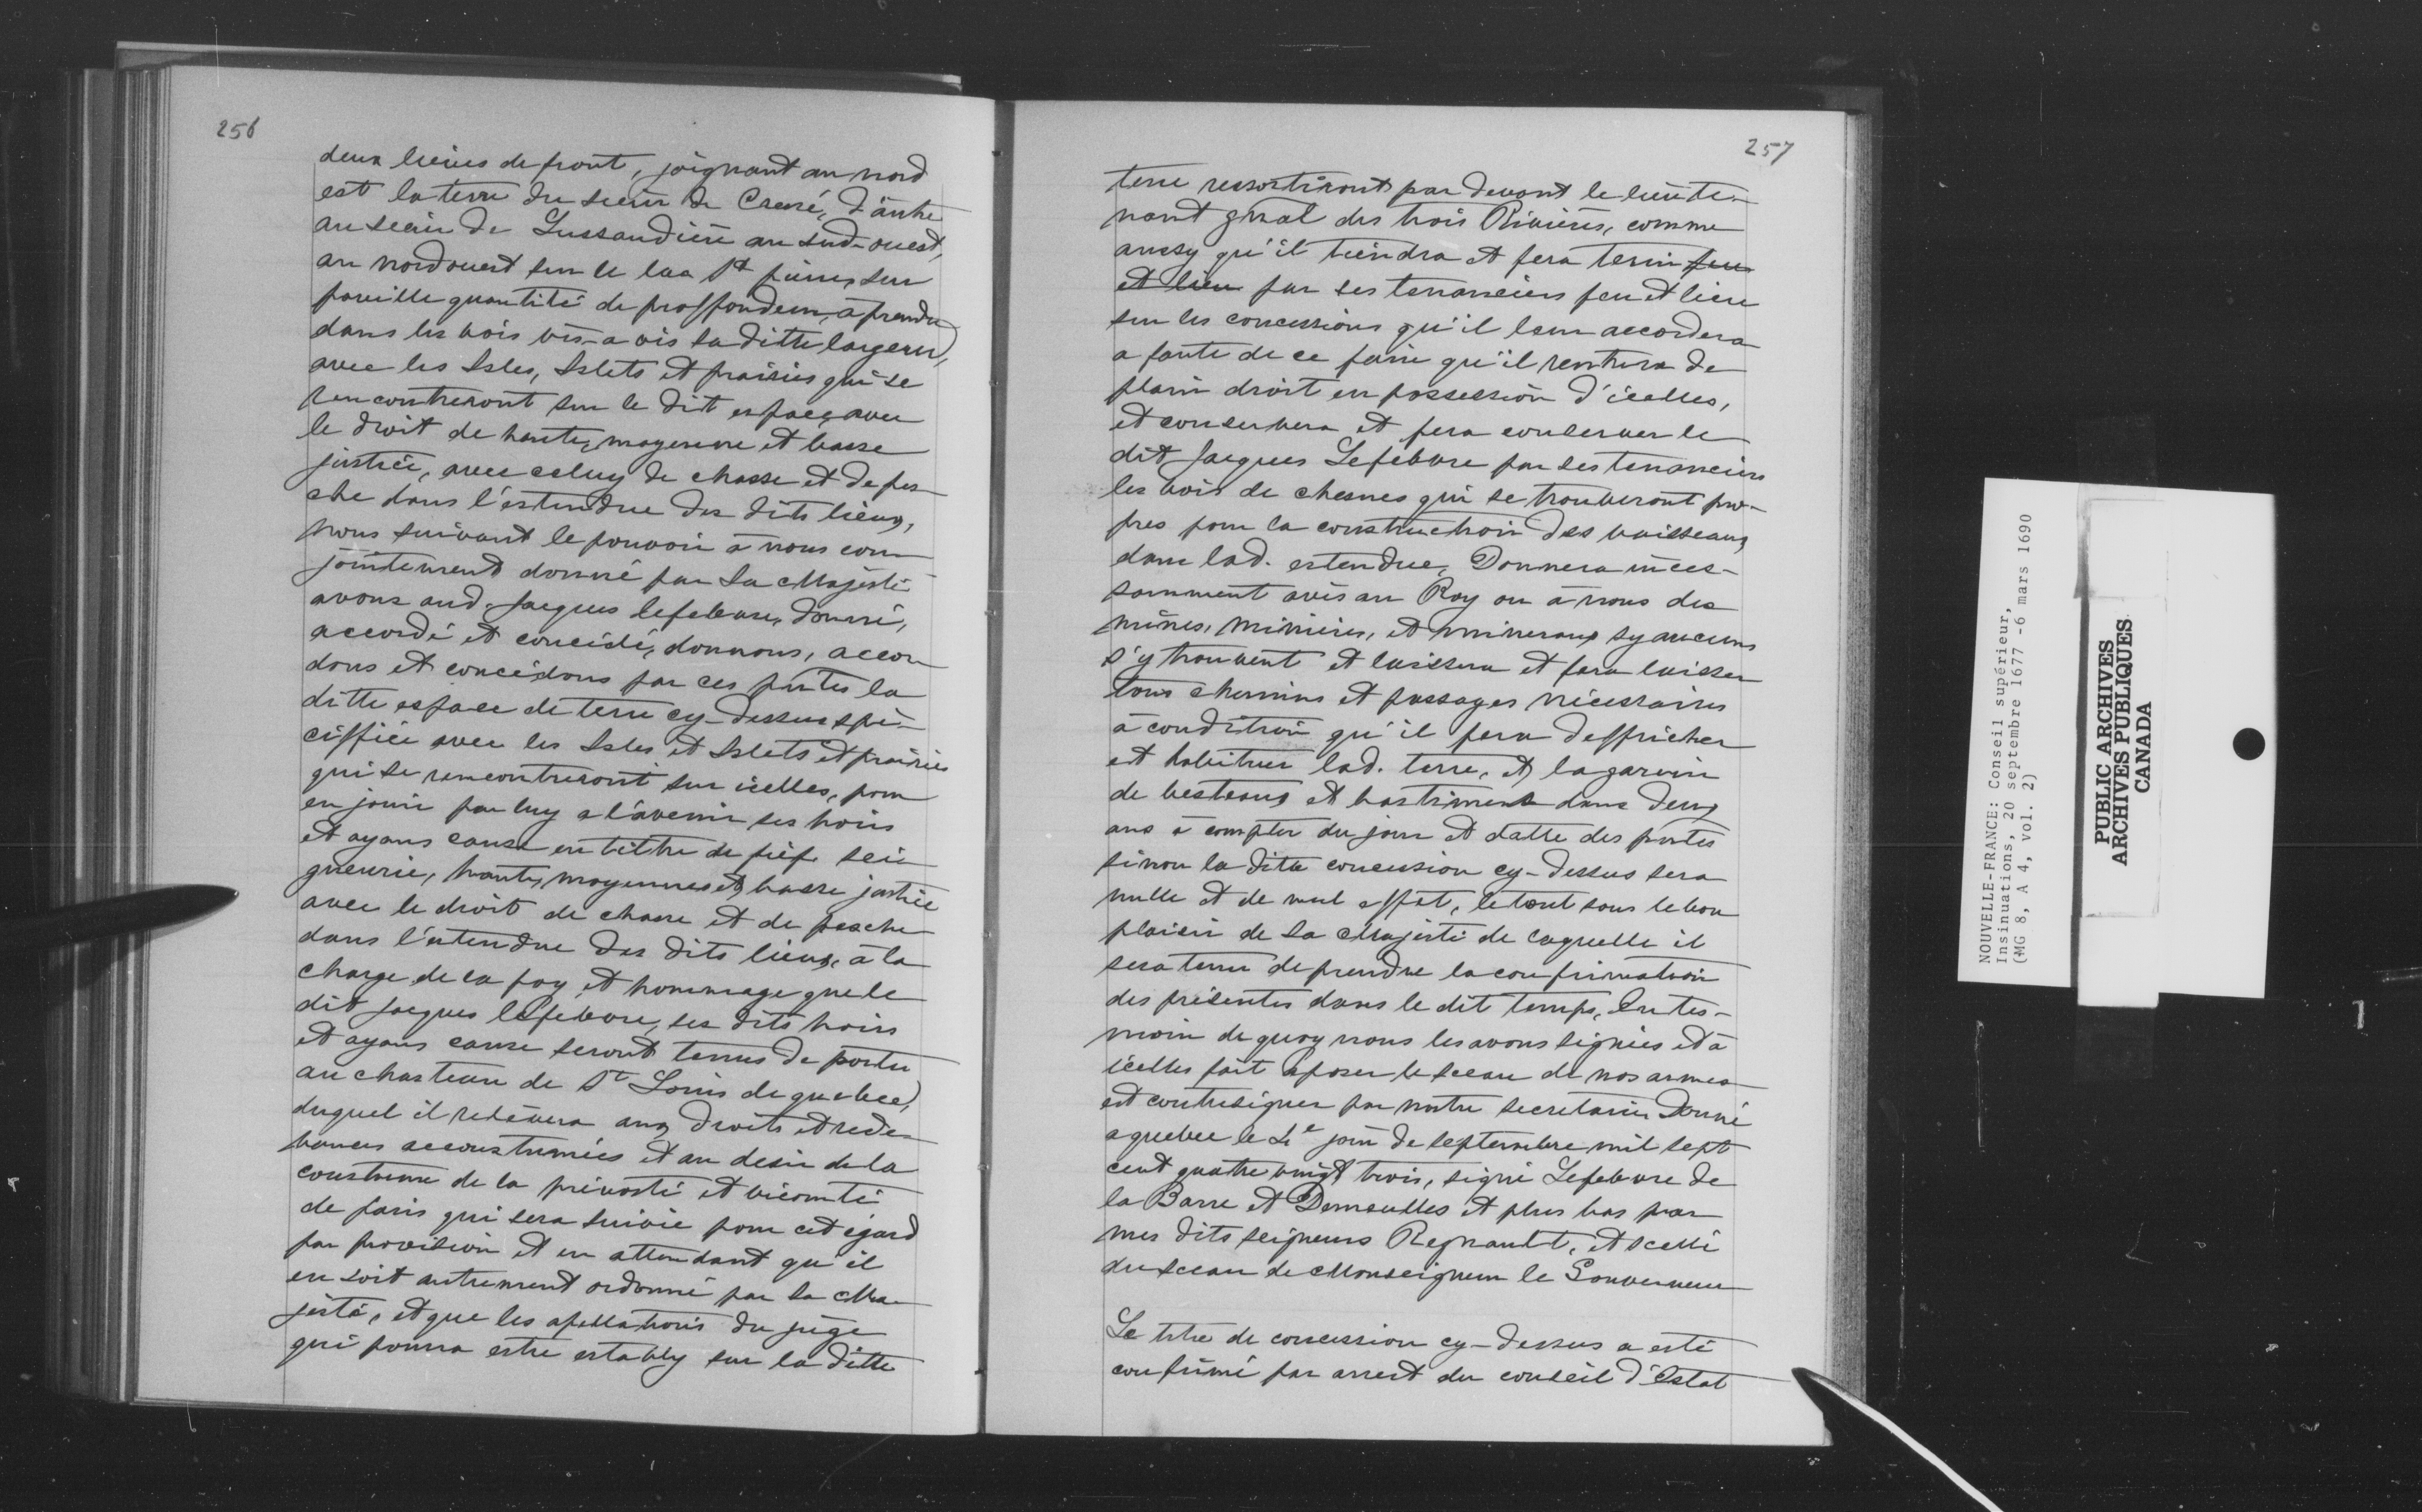 256
deux lieues de front, joignant au nord
est la terre du sieur de Cressé, d'autre
au sieur de Lussaudière au sud-ouest,
au nordouest sur le lac St pierre, sur
pareille quantité de proffondeur, à prendre
dans les bois vis-a vis sa ditte largeur,
avec les Isles, Islets et prairies qui se
rencontreront sur le dit espace, avec
le droit de haute, moyenne et basse
justice, avec celuy de chasse et de pes-
che dans l'estendue des dits lieux,
nous suivant le pouvoir à nous con-
jointement donné par Sa Majesté
avons aud. Jacques lefebvre, donné,
accordé et concédé, donnons, accor-
dons et concédons par ces pntes la
ditte espace de terre cy-dessus spé-
ciffiée avec les Isles et Islets et prairies
qui se rencontreront sur icelles, pour
en jouir par luy a l'avenir ses hoirs
et ayans cause en tittre de fief, sei-
gneurie, haute, moyenne et basse justice
avec le droit de chasse et de pesche
dans l'estendue des dits lieux, à la
charge de la foy et hommage que le
dit Jacques lefebvre, ses dits hoirs
et ayans cause seront tenus de porter
au chasteau de St Louis de quebec,
duquel il relèvera aux droits et rede-
vances accoustumées et au desir de la
coustume de la prévosté et vicomté
de paris qui sera suivie pour cet égard
par provision et en attendant qu'il
en soit autrement ordonné par Sa Ma-
jesté, et que les apellations du juge
qui pourra estre estably sur la ditte
257
terre ressortiront par devant le lieute-
nant gnral des trois Rivières, comme
aussy qu'il tiendra et fera tenir feu
et lieu par ses tenanciers feu et lieu
sur les concessions qu'il leur accordera
a faute de ce faire qu'il rentrera de
plain droit en possession d'icelles,
et conservera et fera conserver le
dit Jacques Lefebvre par ses tenanciers
les bois de chesnes qui se trouveront pro-
pres pour la construction des vaisseaux
dans lad. estendue, Donnera inces-
samment avis au Roy ou à nous des
mines, minières, et mineraux sy aucuns
s'y trouvent et laissera et fera laisser
tous chemins et passages nécessaires
à condition qu'il fera deffricher
et habituer lad. terre, et la garnir
de bestiaux et bastiments dans deux
ans à compter du jour et datte des pntes
sinon la ditte concession cy-dessus sera
nulle et de nul effet, le tout sous le bon
plaisir de Sa Majesté de laquelle il
sera tenu de prendre la confirmation
des présentes dans le dit temps, En tes-
moin de quoy nous les avons signées et à
icelles fait aposer le sceau de nos armes
et contresigner par nostre secretaire Donné
a quebec le 4e jour de septembre mil sept
cent quatre vingt trois, signé Lefebvre de
la Barre et Demeulles et plus bas par
mes dits seigneurs Regnault, et scellé
du sceau de Monseigneur le Gouverneur
Le titre de concession cy-dessus a esté
confirmé par arrest du conseil d'Estat
NOUVELLE-FRANCE: Conseil supérieur,
Insinuations, 20 septembre 1677 -6 mars 1690
(MG 8, A 4, vol. 2)
PUBLIC ARCHIVES
ARCHIVES PUBLIQUES
CANADA